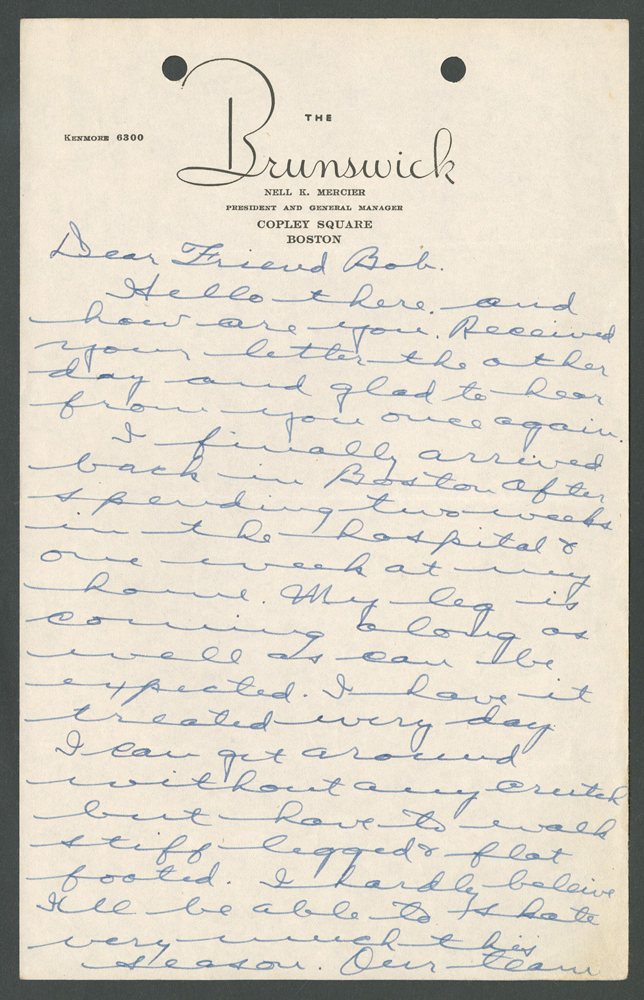 KENMORE 6300
THE
Brunswick
NELL K. MERCIER
PRESIDENT AND GENERAL MANAGER
COPLEY SQUARE
BOSTON
Dear Friend Bob.
Hello there. and
how are you. Received
your letter the other
day and glad to hear
from you once again.
I finally arrived
back in Boston after
spending two weeks
in the hospital &
one week at my
home. My leg is
coming along as
well as can be
expected. I have it
treated every day.
I can get around
without any crutch
but have to walk
stiff legged & flat
footed. I hardly beleive
I'll be able to skate
very much this
season. Our team